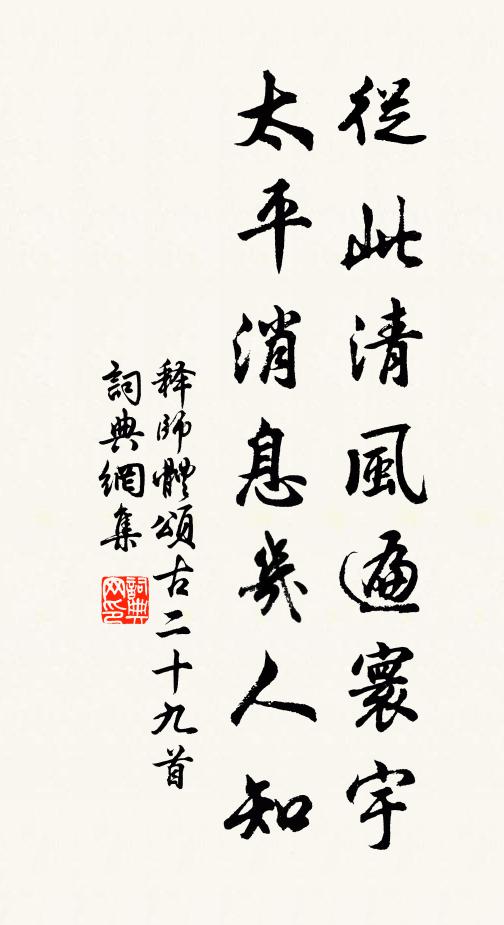 從此清風遍寰宇
太平消息幾人知
释師體頌古二十九首
詞典網集
詞典網印